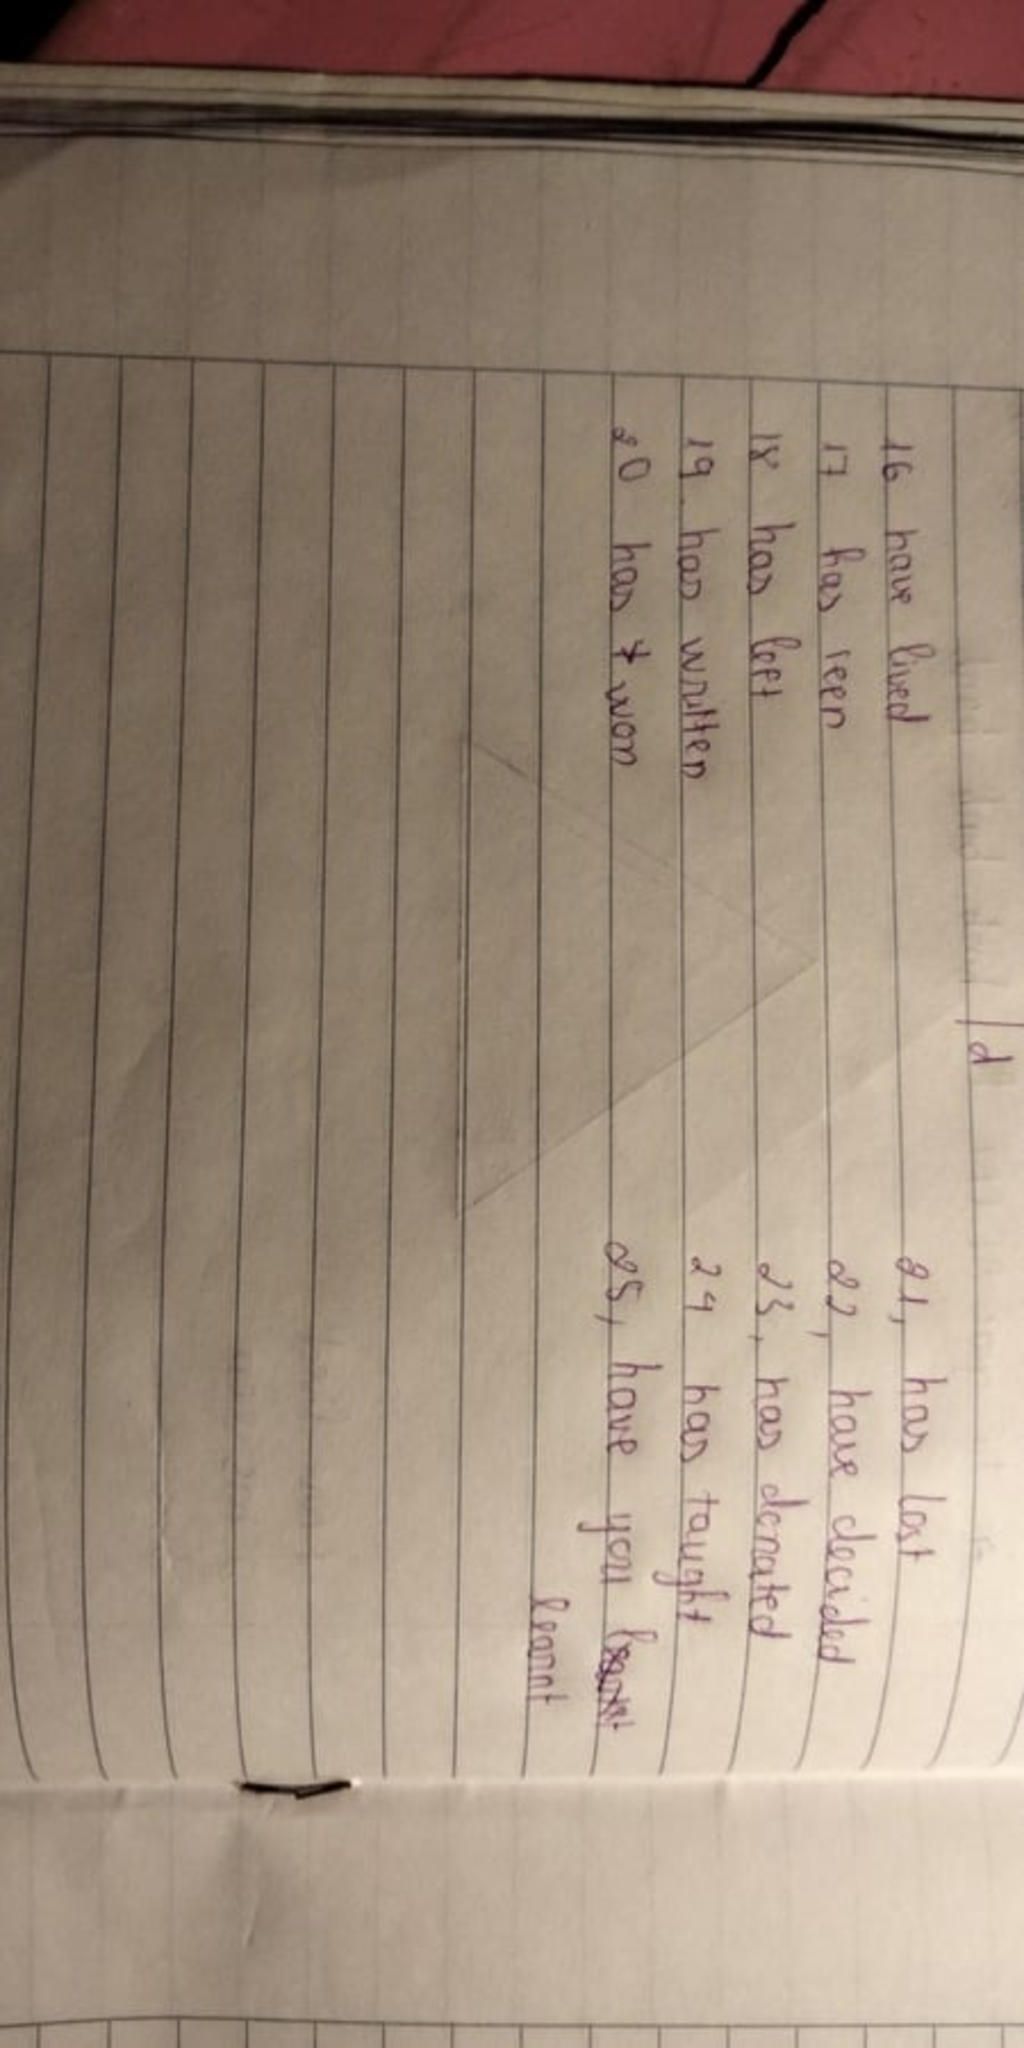 /d
16 have lived
17 has seen
18 has left
19. has written
20 has won
21, has lost
22, have decided
23, has donated
24 has taught
25, have you
learnt